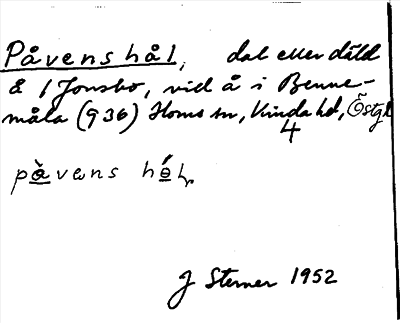 Påvenshål, dal eller däld
Ö / Jonsbo, vid å i Benne-
måla (936) Horns sn, Kinda hd, Östgl
4
pàvens hól
J Sterner 1952